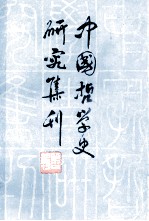 中國哲学史
研究集刊